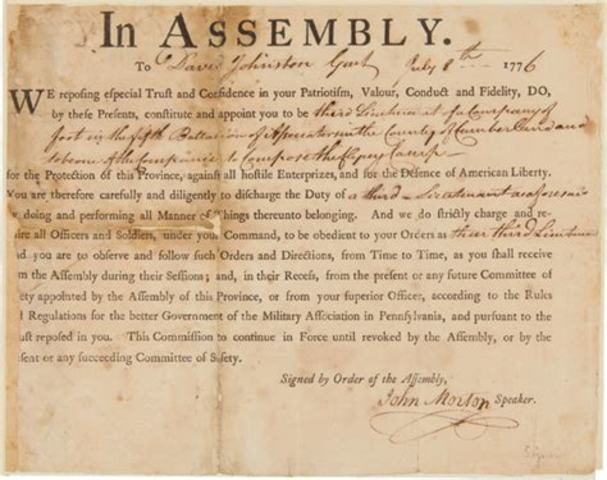 In ASSEMBLY.
To David Johnston Gent July 8th 1776
WE reposing especial Trust and Confidence in your Patriotism, Valour, Conduct and Fidelity, DO,
by these Presents, constitute and appoint you to be third Lieutenant of a Company of
foot in the fifth Battalion of Associators in the County of Cumberland and
to be one of the Companies to Compose the flying Camp —
for the Protection of this Province, against all hostile Enterprizes, and for the Defence of American Liberty.
You are therefore carefully and diligently to discharge the Duty of a third Lieutenant as aforesaid
doing and performing all Manner of Things thereunto belonging. And we do strictly charge and re-
ire all Officers and Soldiers, under your Command, to be obedient to your Orders as their third Lieutenant
d you are to observe and follow such Orders and Directions, from Time to Time, as you shall receive
m the Assembly during their Sessions; and, in their Recess, from the present or any future Committee of
ety appointed by the Assembly of this Province, or from your superior Officer, according to the Rules
d Regulations for the better Government of the Military Association in Pennsylvania, and pursuant to the
ust reposed in you. This Commission to continue in Force until revoked by the Assembly, or by the
esent or any succeeding Committee of Safety.
Signed by Order of the Assembly,
John Morton Speaker.